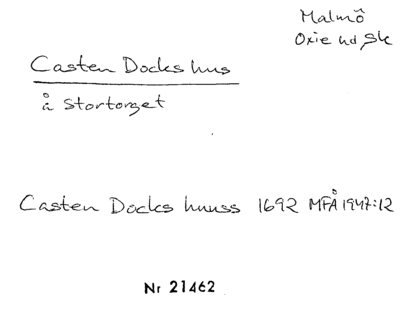 Malmö
Oxie hd Sk
Casten Docks hus
å Stortorget
Casten Docks huuss 1692 MFÅ 1947:12
Nr 21462